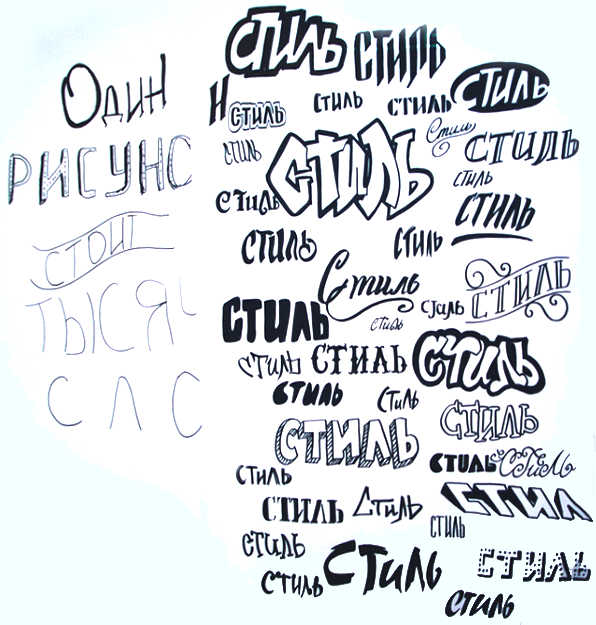 Один
РИСУНО
СТОИТ
ТЫСЯЧ
СЛО
СТИЛЬ СТИЛЬ
Н СТИЛЬ СТИЛЬ СТИЛЬ СТИЛЬ
СТИЛЬ СТИЛЬ Стиль СТИЛЬ
СТИЛЬ СТИЛЬ СТИЛЬ
СТИЛЬ СТИЛЬ
Стиль СТИЛЬ
СТИЛЬ стиль СТИЛЬ
СТИЛЬ СТИЛЬ СТИЛЬ
СТИЛЬ СТИЛЬ
СТИЛЬ СТИЛЬ
СТИЛЬ СТИЛЬ СТИЛЬ
СТИЛЬ СТИЛЬ СТИЛ
СТИЛЬ СТИЛЬ
СТИЛЬ СТИЛЬ СТИЛЬ
СТИЛЬ